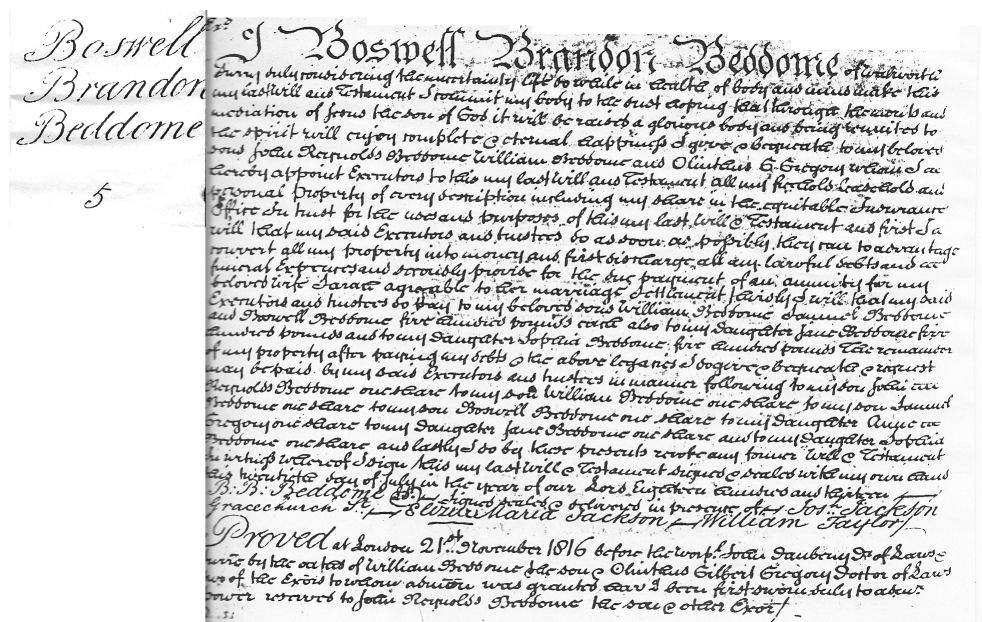 Boswell
Brandon
Beddome
5
I Boswell Brandon Beddome of Walworth
Surry duly considering the uncertainty of life do while in health of body and mind make this
my last Will and Testament I commit my body to the dust hoping that through the merits and
mediation of Jesus the son of God it will be raised a glorious body and being reunited to
the spirit will enjoy complete & eternal happiness I give & bequeath to my beloved
sons John Reynolds Beddome William Beddome and Olinthus G Gregory whom I
hereby appoint Executors to this my last Will and Testament all my freehold leasehold and
personal Property of every description including my share in the equitable Insurance
Office In trust for the uses and purposes of this my last Will & Testament and first I
will that my said Executors and trustees do as soon as possibly they can to advantage
convert all my property into money and first discharge all my lawful debts and
funeral Expences and securely provide for the due payment of an annuity for my
beloved wife Sarah agreable to her marriage settlement thirdly I will that my said
Executors and trustees do pay to my beloved sons William Beddome Samuel Beddome
and Boswell Beddome five hundred pounds each also to my daughter Jane Beddome five
hundred pounds and to my daughter Sophia Beddome five hundred pounds The remainder
of my property after paying my debts & the above legacies I do give & bequeath & request
may be paid by my said Executors and trustees in manner following to my son John
Reynolds Beddome one share to my son William Beddome one share to my son Samuel
Beddome one share to my son Boswell Beddome one share to my daughter Anne
Gregory one share to my daughter Jane Beddome one share and to my daughter Sophia
Beddome one share and lastly I do by these presents revoke any former Will & Testament
In witness whereof I sign this my last Will & Testament signed & sealed with my own hand
this twentieth day of July in the year of our Lord Eighteen hundred and thirteen
B: B: Beddome Signed sealed & delivered in presence of Josh Jackson
Gracechurch St Eliza Maria Jackson William Taylor
Proved at London 21st November 1816 before the worpl John Daubeny Dr of Laws &
by the oaths of William Beddome the son & Olinthus Gilbert Gregory Doctor of Laws
two of the Exors to whom admon was granted havg been first sworn duly to admr
power reserved to John Reynolds Beddome the son & other Exor